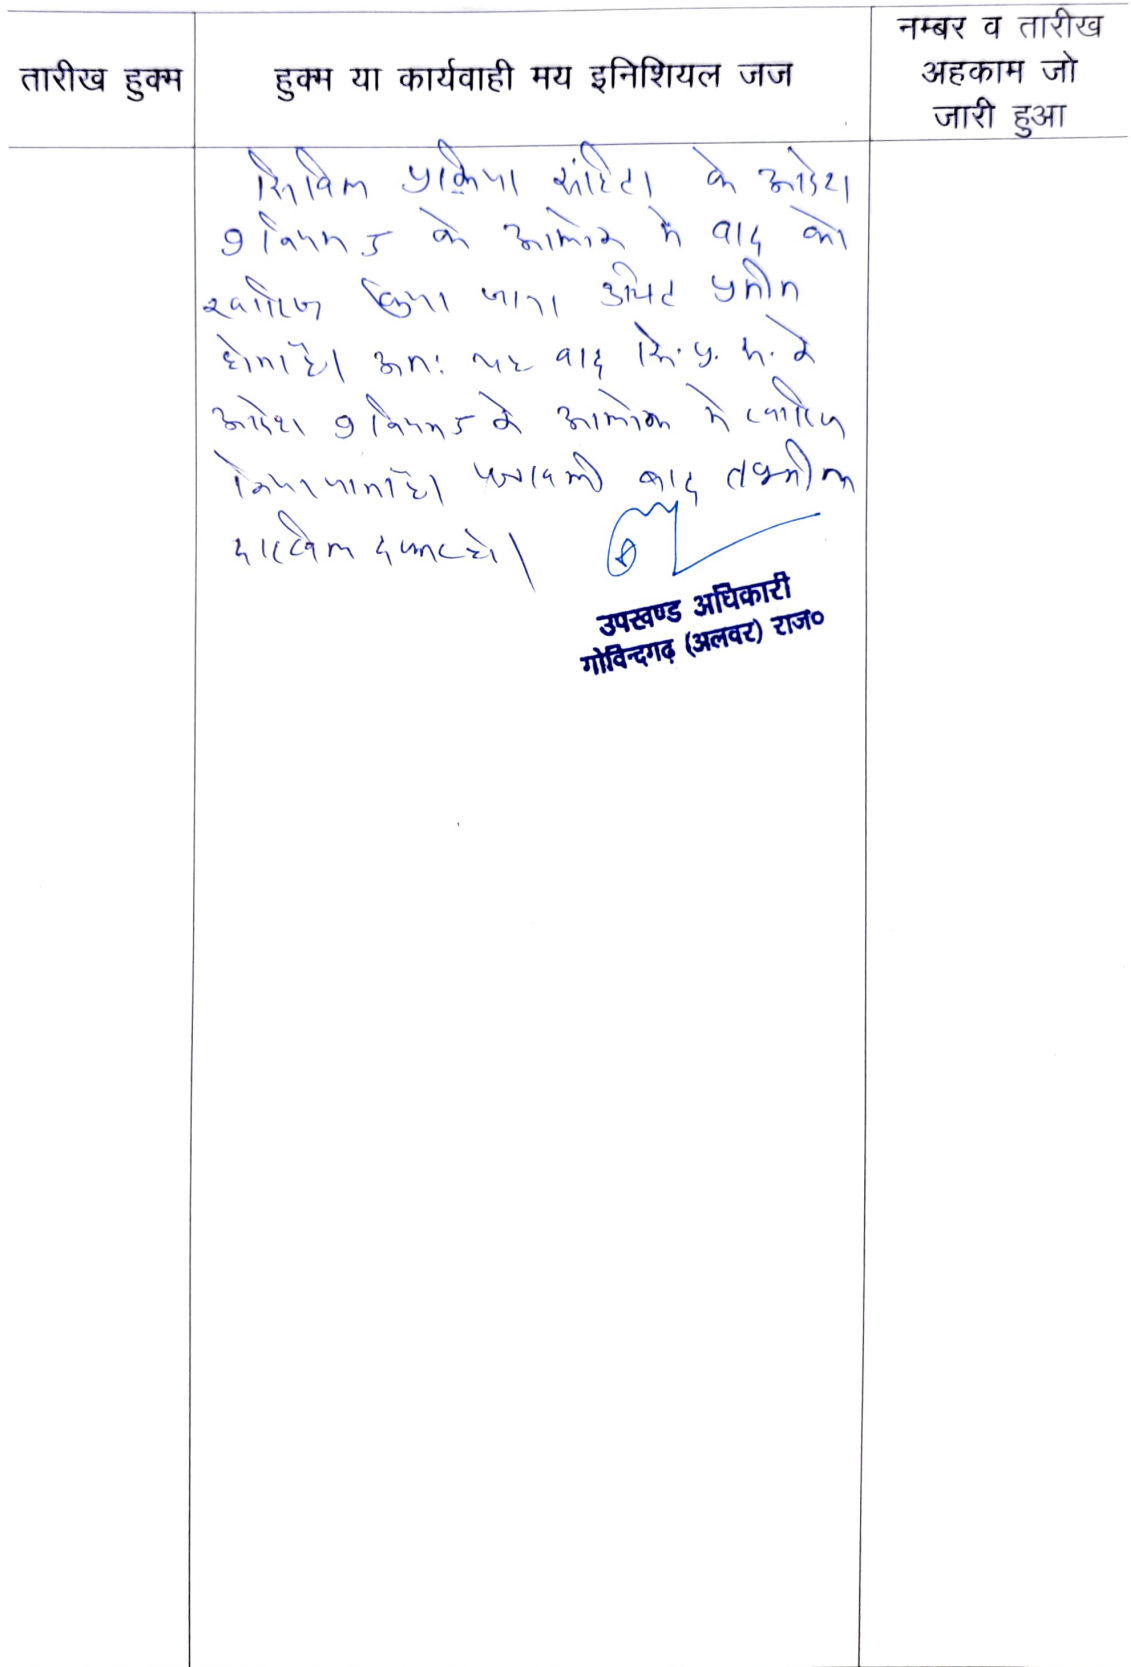 तारीख हुक्म
हुक्म या कार्यवाही मय इनिशियल जज
नम्बर व तारीख
अहकाम जो
जारी हुआ
सिविल प्रक्रिया संहिता के आदेश
9 नियम 5 के आलोक में वाद को
खारिज किया जाना उचित प्रतीत
होता है। अतः यह वाद सि. प्र. सं. के
आदेश 9 नियम 5 के आलोक में खारिज
किया जाता है। पत्रावली बाद तकमील
दाखिल दफ्तर हो।
उपखण्ड अधिकारी
गोविन्दगढ़ (अलवर) राज०